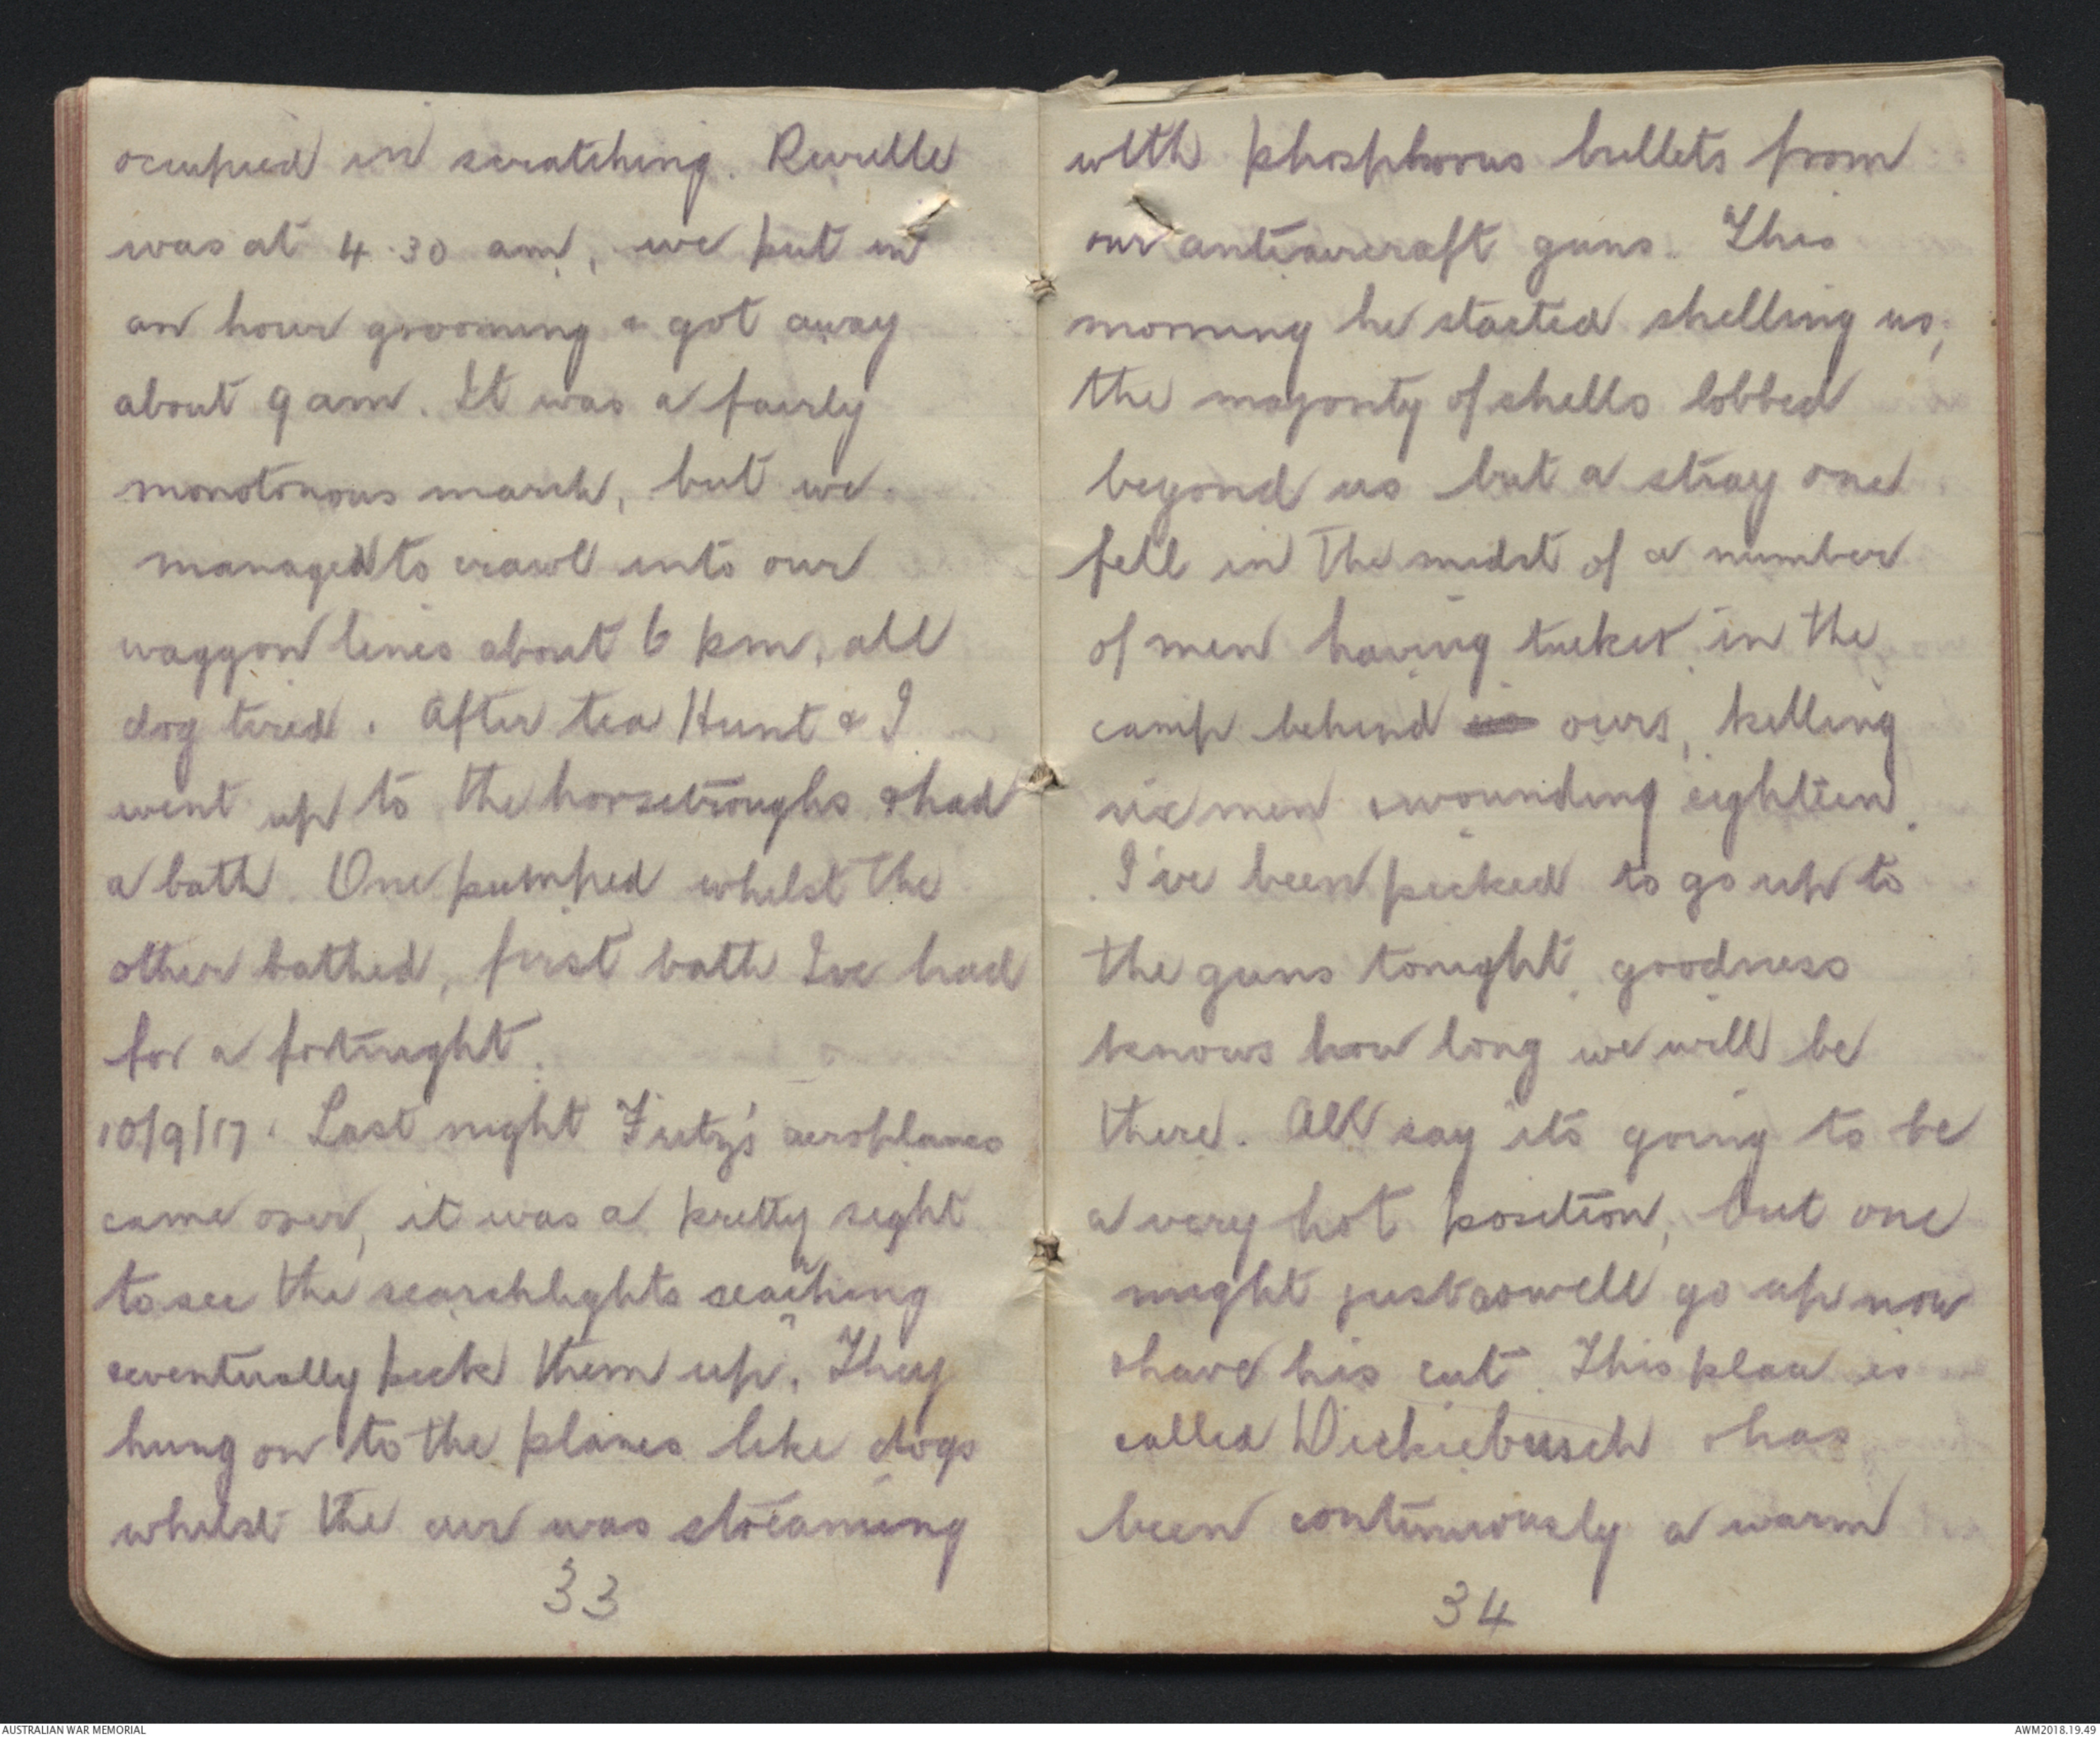 occupied in scratching. Reveille
was at 4.30 am, we put in
an hour grooming & got away
about 9 am. It was a fairly
monotonous march, but we
managed to crawl into our
waggon lines about 6 pm, all
dog tired. After tea Hunt & I
went up to the horsetroughs & had
a bath. One pumped whilst the
other bathed, first bath Ive had
for a fortnight.
10/9/17. Last night Fritz's aeroplanes
came over, it was a pretty sight
to see the searchlights seaching
r
eventually pick them up. They
hung on to the planes like dogs
whilst the air was streaming
33
with phosphorus bullets from
our antiaircraft guns. This
morning he started shelling us,
the majority of shells lobbed
beyond us but a stray one
fell in the midst of a number
of men having tucker in the
camp behind us ours, killing
six men & wounding eighteen.
I've been picked to go up to
the guns tonight, goodness
knows how long we will be
there. All say its going to be
a very hot position, but one
might just aswell go up now
& have his cut. This place is
called Dickiebusch & has
been continuously a warm
34
AUSTRALIAN WAR MEMORIAL
AWM2018.19.49